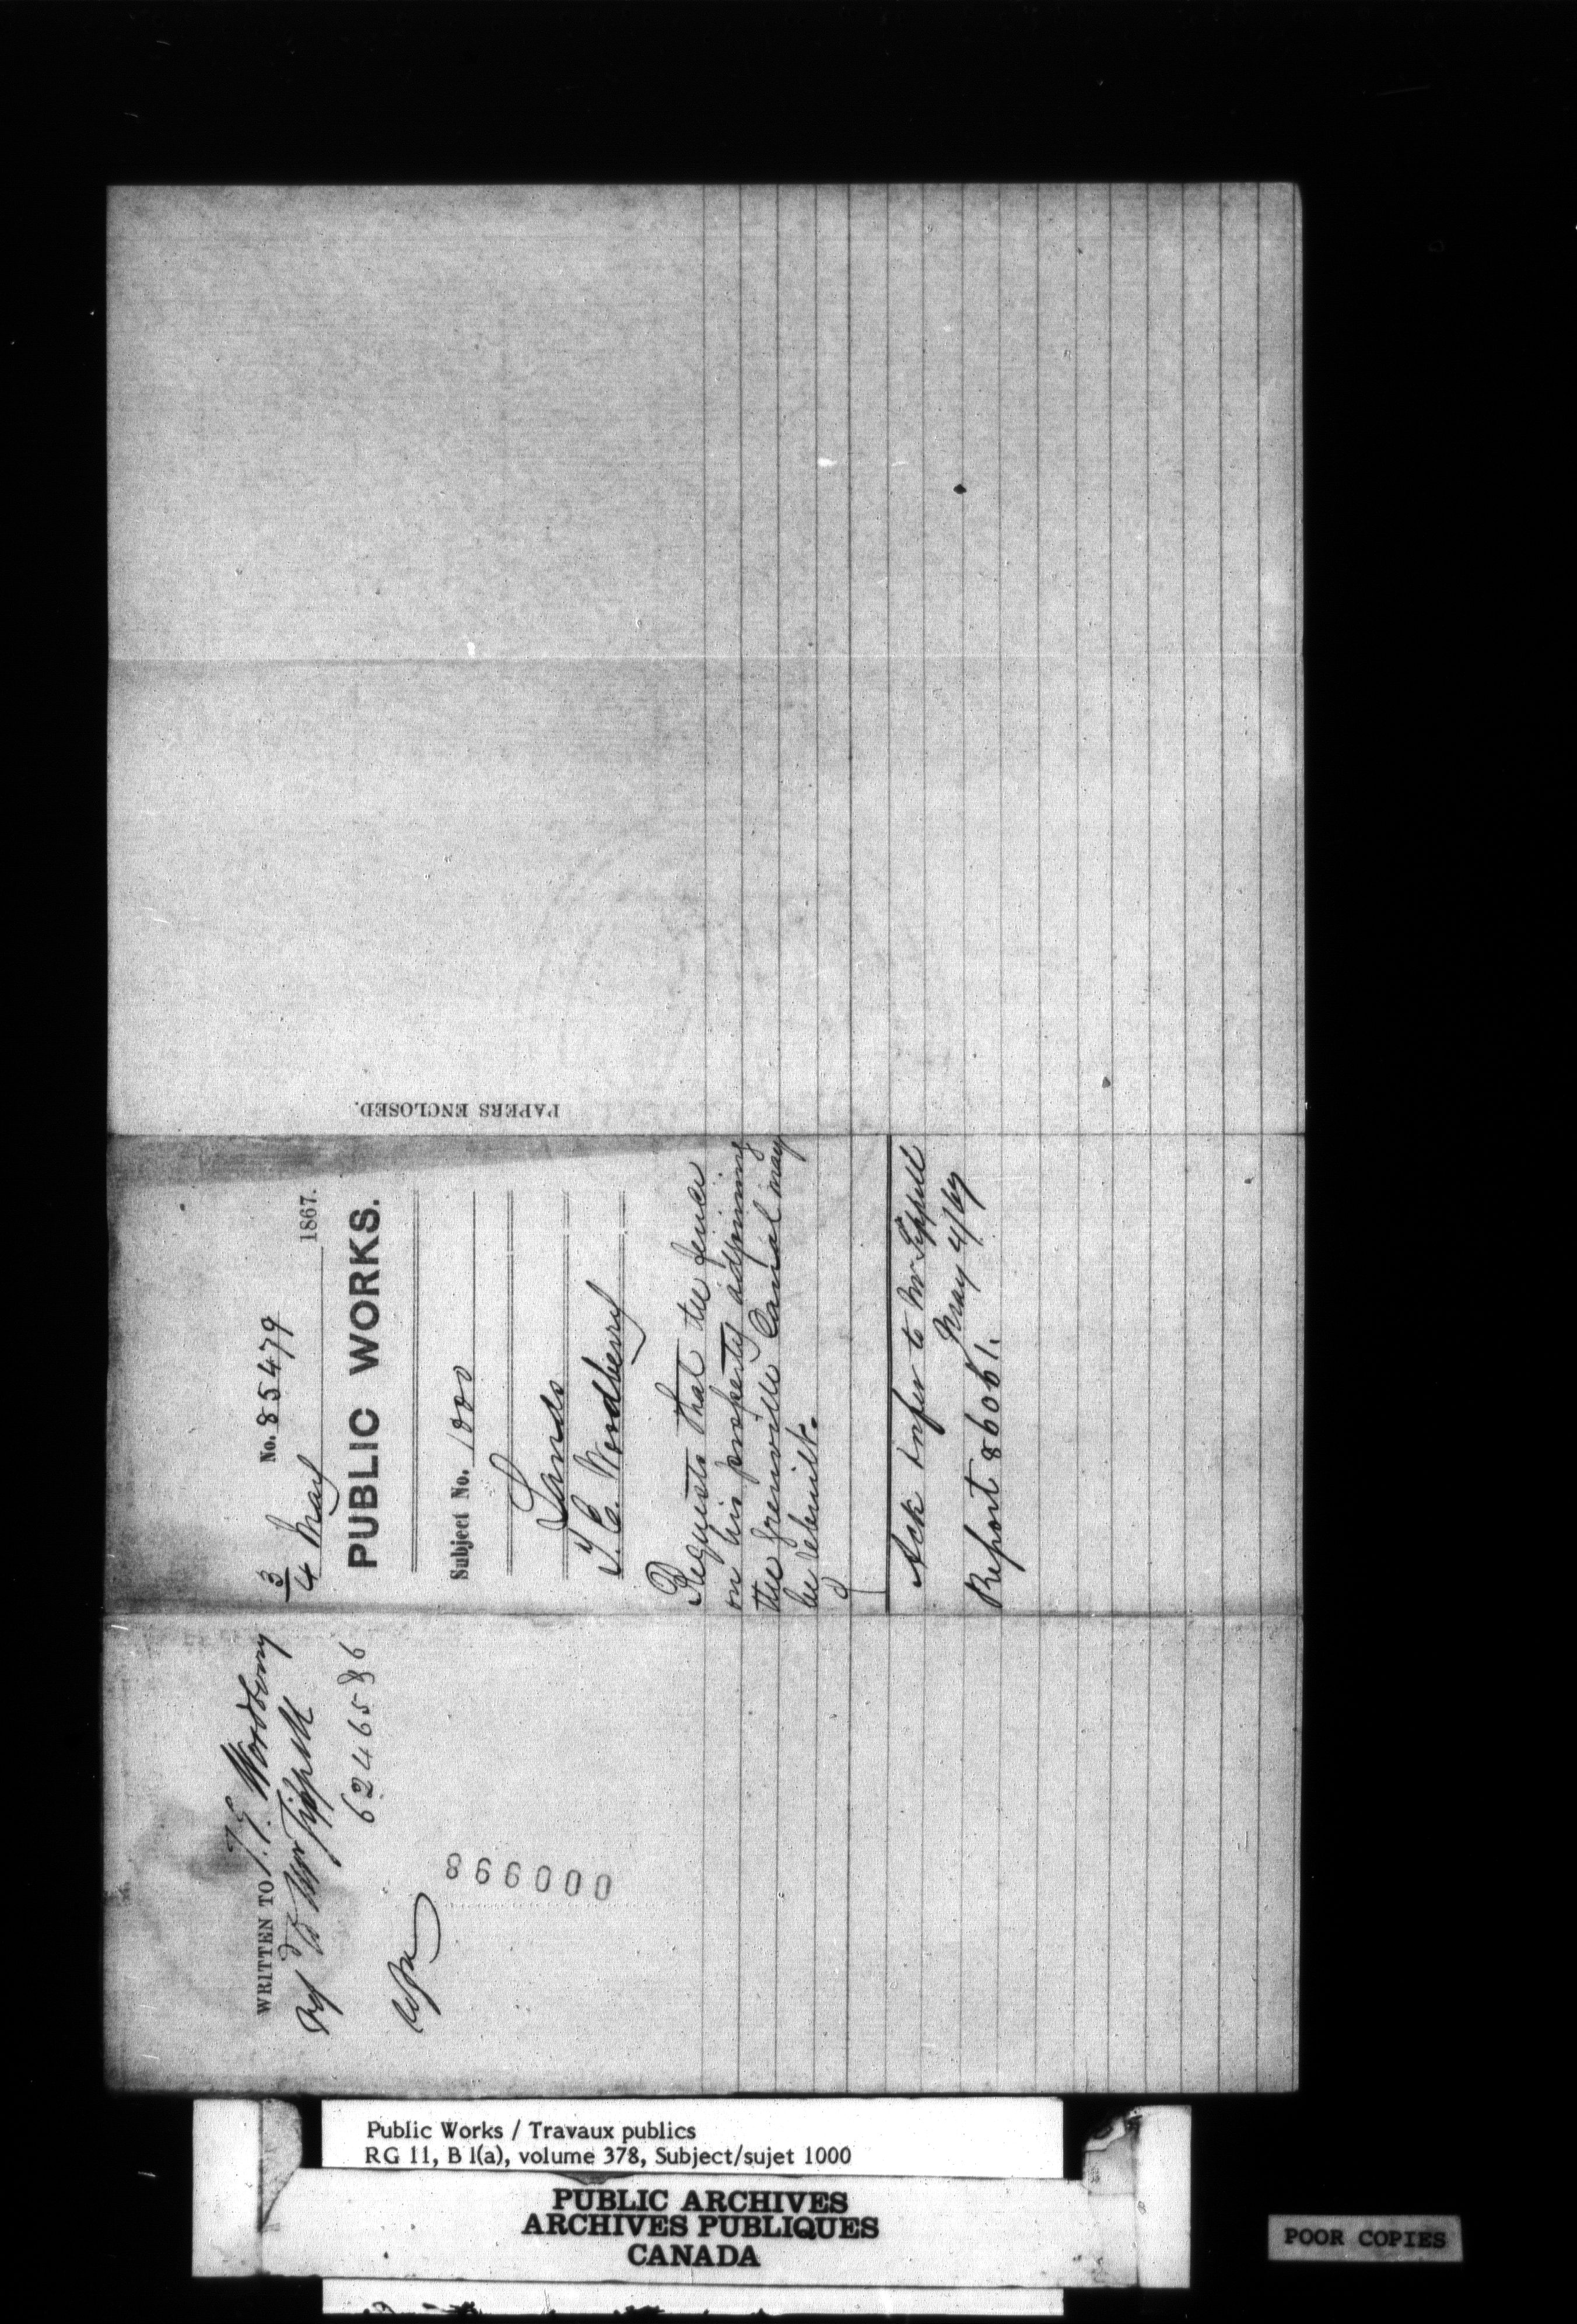 WRITTEN TO T. C. Woodberry
Mr Sippell
62465 86
000998
No. 85479
3/4 May 1867.
PUBLIC WORKS.
Subject No. 1000
Lands
T. C. Woodberry
Requests that the fence
on his property adjoining
the Grenville Canal may
be rebuilt.
Ack & refer to Mr Sippell
May 4/67
Report 86061.
PAPERS ENCLOSED.
Public Works / Travaux publics
RG 11, B 1(a), volume 378, Subject/sujet 1000
PUBLIC ARCHIVES
ARCHIVES PUBLIQUES
CANADA
POOR COPIES